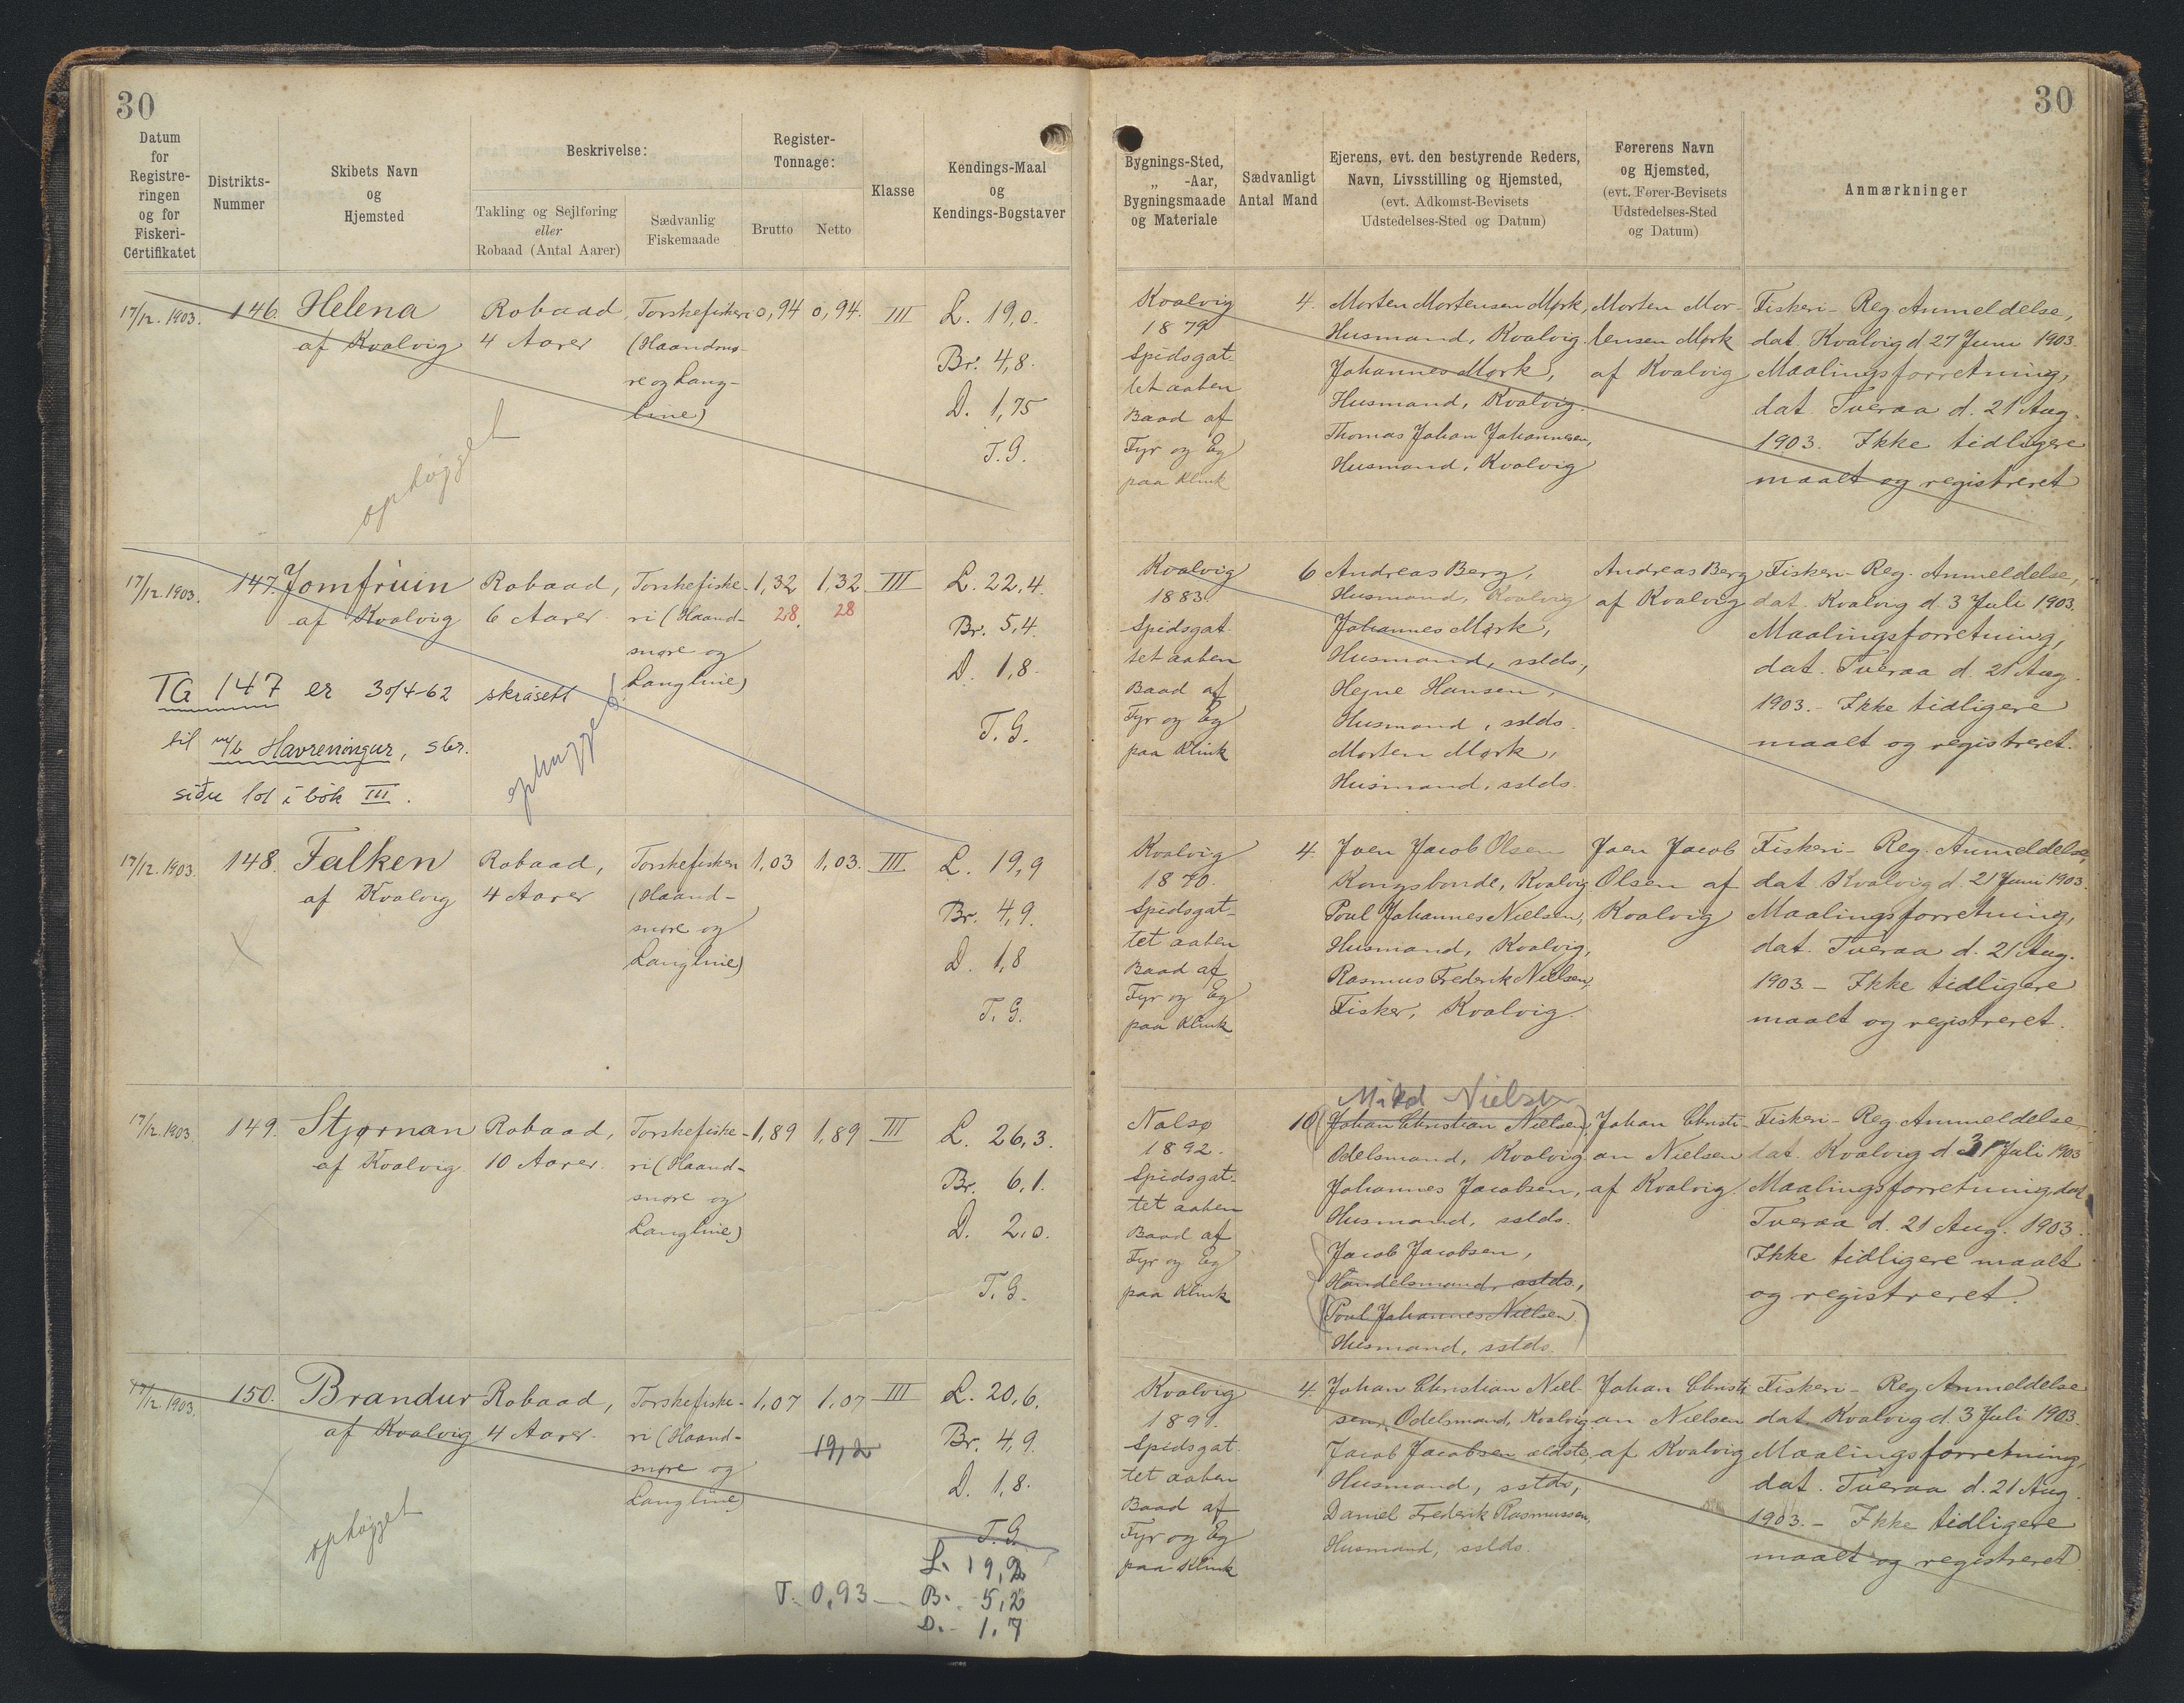 30
30
Datum
for
Registre-
ringen
og for
Fiskeri-
Certifikatet
Distrikts-
Nummer
Skibets Navn
og
Hjemsted
Beskrivelse:
Takling og Sejlføring
eller
Robaad (Antal Aarer)
Sædvanlig
Fiskemaade
Register-
Tonnage:
Brutto
Netto
Klasse
Kendings-Maal
og
Kendings-Bogstaver
Bygnings-Sted,
„ -Aar,
Bygningsmaade
og Materiale
Sædvanligt
Antal Mand
Ejerens, evt. den bestyrende Reders,
Navn, Livsstilling og Hjemsted,
(evt. Adkomst-Bevisets
Udstedelses-Sted og Datum)
Førerens Navn
og Hjemsted,
(evt. Fører-Bevisets
Udstedelses-Sted
og Datum)
Anmærkninger
17/12. 1903.
146.
Helena
af Kvalvig
Robaad
4 Aarer
Torskefiskeri
(Haandsnø-
re og Lang-
line)
0,94
0,94.
III
L. 19,0.
Br. 4,8.
D. 1,75
T.G.
ophøgget
Kvalvig
1879
Spidsgat-
tet aaben
Baad af
Fyr og Eg
paa Klink
4.
Morten Mortensen Mørk,
Husmand, Kvalvig.
Johannes Mørk,
Husmand, Kvalvig.
Thomas Johan Johannesen,
Husmand, Kvalvig
Morten Mor-
tensen Mørk
af Kvalvig
Fiskeri- Reg. Anmeldelse,
dat. Kvalvig d 27 Juni 1903.
Maalingsforretning,
dat. Tveraa d. 21 Aug.
1903. Ikke tidligere
maalt og registreret
17/12. 1903.
147.
Jomfruin
af Kvalvig
Robaad,
6 Aarer.
Torskefiske-
ri (Haand-
snøre og
Langline)
1,32
28.
1,32
28
III
L. 22,4.
Br. 5,4.
D. 1,8.
T.G.
TG 147 er 30/4-62 skrásett
til m/b Havreningur, sbr.
síðu 101 í bók III.
ophugget
Kvalvig
1883.
Spidsgat-
tet aaben
Baad af
Fyr og Eg
paa Klink
6
Andreas Berg,
Husmand, Kvalvig
Johannes Mørk,
Husmand, sstds,
Hejne Hansen,
Husmand, sstds.
Morten Mørk,
Husmand, sstds.
Andreas Berg
af Kvalvig
Fiskeri- Reg. Anmeldelse,
dat. Kvalvig d. 3 Juli 1903.
Maalingsforretning,
dat. Tveraa d. 21 Aug.
1903.- Ikke tidligere
maalt og registreret.
17/12. 1903.
148.
Falken
af Kvalvig
Robaad,
4 Aarer
Torskefiskeri
(Haand-
snøre og
Langline)
1,03
1,03.
III
L. 19,9
Br. 4,9.
D. 1,8
T.G.
Kvalvig
1870.
Spidsgat-
tet aaben
Baad af
Fyr og Eg
paa Klink
4.
Joen Jacob Olsen
Kongsbonde, Kvalvig
Poul Johannes Nielsen,
Husmand, Kvalvig,
Rasmus Frederik Nielsen,
Fisker, Kvalvig.
Joen Jacob
Olsen af
Kvalvig
Fiskeri- Reg. Anmeldelse,
dat. Kvalvig d. 21 Juni 1903.
Maalingsforretning,
dat. Tveraa d. 21 Aug.
1903.- Ikke tidligere
maalt og registreret.
17/12. 1903.
149.
Stjørnan
af Kvalvig
Robaad,
10 Aarer.
Torskefiske-
ri (Haand-
snøre og
Langline)
1,89
1,89
III
L. 26,3.
Br. 6,1.
D. 2,0.
T.G.
Nolsø
1892.
Spidsgat-
tet aaben
Baad af
Fyr og Eg
paa Klink
10
Nielsen
(Johan Christian Nielsen),
Odelsmand, Kvalvig.
Johannes Jacobsen,
Husmand, sstds.
Jacob Jacobsen,
Handelsmand, sstds,
(Poul Johannes Nielsen)
Husmand, sstds.
Johan Christi-
an Nielsen
af Kvalvig.
Fiskeri- Reg. Anmeldelse
dat. Kvalvig d 3 Juli 1903
Maalingsforretning, dat
Tveraa d. 21 Aug. 1903.
Ikke tidligere maalt
og registreret.
17/12. 1903.
150.
Brandur
af Kvalvig
Robaad,
4 Aarer.
Torskefiske-
ri (Haand-
snøre og
Langline)
1,07
1,07
19,2
III
L. 20,6.
Br. 4,9.
D. 1,8.
T.G.
L. 19,2
T. 0,93 - B. 5,2
D. - 1.7
ophøgget
Kvalvig
1891.
Spidsgat-
tet aaben
Baad af
Fyr og Eg
paa Klink
4.
Johan Christian Niel-
sen, Odelsmand, Kvalvig.
Jacob Jacobsen ældste,
Husmand, sstds,
Daniel Frederik Rasmussen,
Husmand, sstds.
Johan Christi-
an Nielsen
af Kvalvig
Fiskeri- Reg. Anmeldelse
dat. Kvalvig d. 3 Juli 1903.
Maalingsforretning,
dat. Tveraa d. 21 Aug.
1903.- Ikke tidligere
maalt og registreret